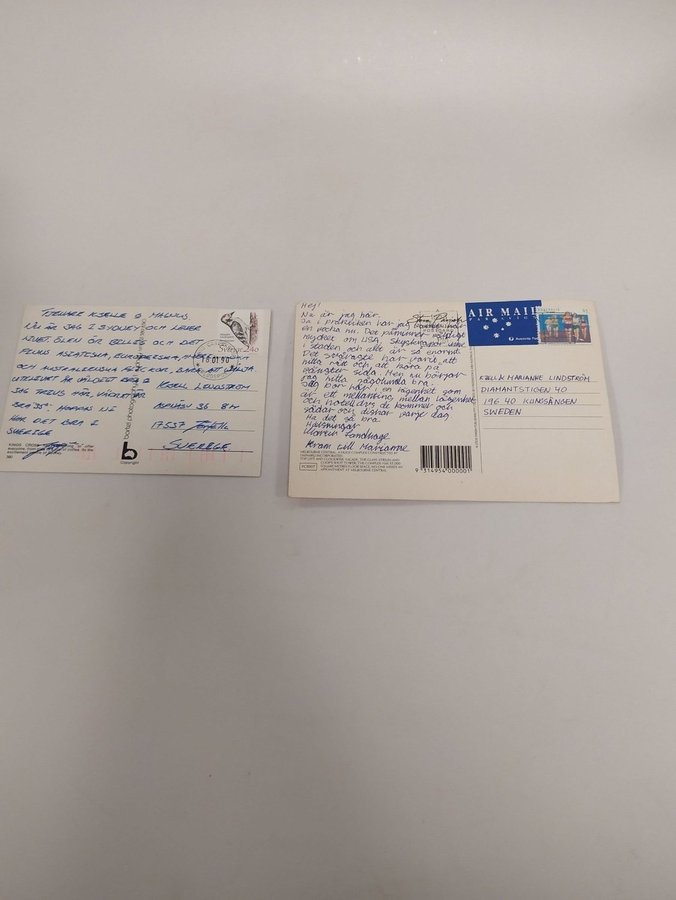 TJENARE KJELLE & MAGNUS
NU ÄR JAG I SYDNEY OCH LEVER
LIVET. ÖLEN ÄR BILLIG OCH DET
FINNS ASIATISKA, EUROPEISKA,
OCH AUSTRALIENSKA FLICKOR, BARA ATT VÄLJA
UTELIVET ÄR VÄLDIGT BRA
JAG TRIVS HÄR, VÄDRET ÄR
BRA 35°. HOPPAS NI
HAR DET BRA I
SVERIGE
KINGS CROSS
Sverige 240
18.01.90
KJELL LINDSTRÖM
36 8TR
17537
SVERIGE
b
Hej!
Nu är jag här.
en vecka nu. Det påminner väldigt
mycket om USA. Skyskrapor
i staden och allt är så enormt.
Det svåraste har varit att
hitta rätt och att köra på
vänster sida. Men nu börjar
jag hitta någorlunda bra.
Jag bor här i en
är ett mellanting mellan lägenhet
och hotell dvs de kommer och
städar och diskar varje dag.
Ha det så bra
Hälsningar
Kram till Marianne
AIR MAIL
PAR AVION
KJELL & MARIANNE LINDSTRÖM
DIAMANTSTIGEN 40
196 40 KUNGSÄNGEN
SWEDEN
9 314954 000001